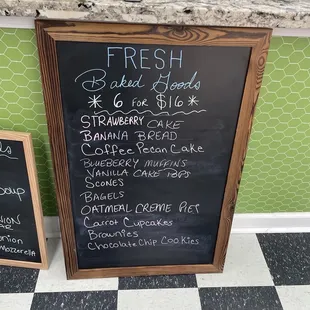 FRESH
Baked Goods
* 6 FOR $16 *
STRAWBERRY CAKE
BANANA BREAD
Coffee Pecan Cake
BLUEBERRY MUFFINS
VANILLA CAKE POPS
SCONES
BAGELS
OATMEAL CREME PIES
Carrot Cupcakes
Brownies
Chocolate Chip Cookies